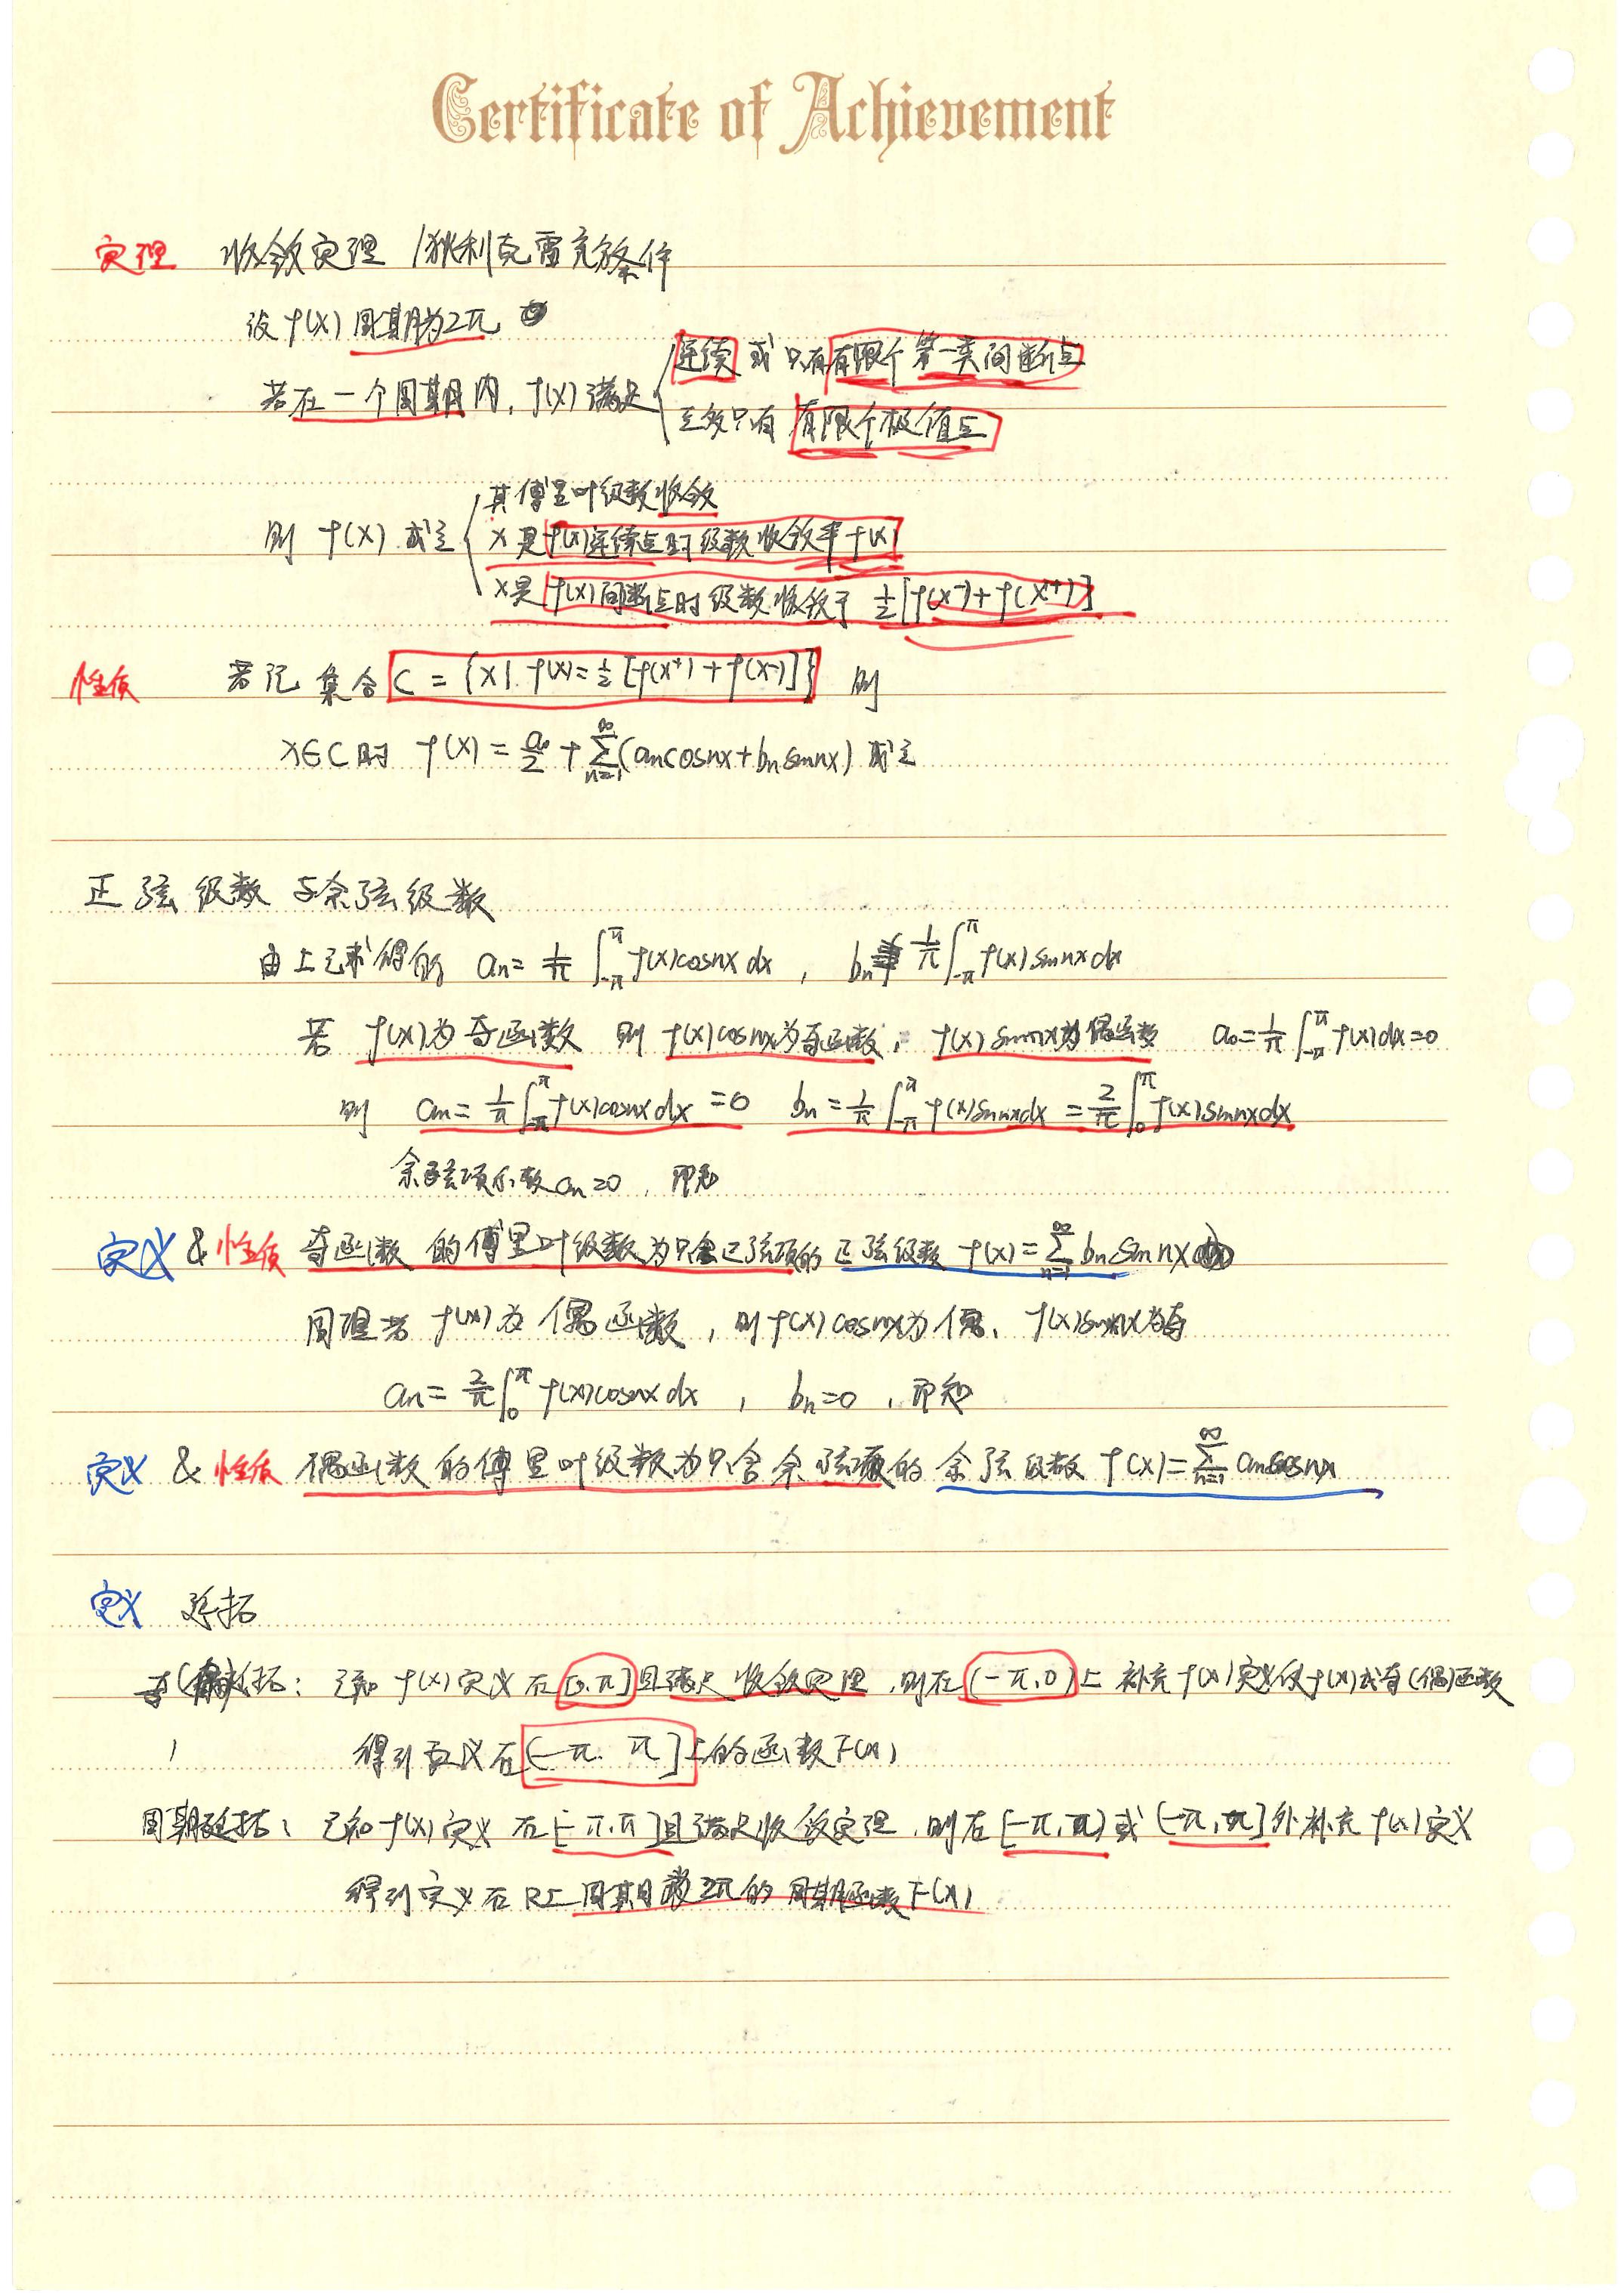 Certificate of Achievement
定理 收敛定理/狄利克雷充分条件
设 f(x) 周期为2π
若在一个周期内, f(x) 满足
连续 或 只有有限个第一类间断点
至多只有 有限个极值点
则 f(x) 成立
其傅里叶级数收敛
x是f(x)连续点时级数收敛于f(x)
x是f(x)间断点时级数收敛于 1/2[f(x⁻)+f(x⁺)]
性质 若记集合 C = {x| f(x)=1/2[f(x⁺)+f(x⁻)]} 则
x∈C时 f(x) = a₀/2 + ∑_{n=1}^{∞}(aₙcosnx+bₙsinnx) 成立
正弦级数与余弦级数
由上已求得的 aₙ= 1/π ∫_{-π}^{π} f(x)cosnx dx , bₙ= 1/π ∫_{-π}^{π} f(x)sinnx dx
若 f(x)为奇函数 则 f(x)cosnx为奇函数, f(x)sinnx为偶函数 a₀=1/π ∫_{-π}^{π} f(x)dx=0
则 aₙ= 1/π ∫_{-π}^{π} f(x)cosnx dx =0 bₙ=1/π ∫_{-π}^{π} f(x)sinnxdx = 2/π ∫_{0}^{π} f(x)sinnxdx
余弦项系数aₙ=0, 即知
定义 & 性质 奇函数的傅里叶级数为只含正弦项的 正弦级数 f(x)=∑_{n=1}^{∞} bₙ sin nx
同理若 f(x)为 偶函数, 则f(x)cosnx为偶, f(x)sinnx为奇
aₙ= 2/π ∫_{0}^{π} f(x)cosnx dx , bₙ=0 , 即知
定义 & 性质 偶函数的傅里叶级数为只含余弦项的 余弦级数 f(x)=∑_{n=1}^{∞} aₙcosnx
定义 延拓
奇(偶)延拓: 已知 f(x)定义在[0,π]且满足收敛定理, 则在(-π,0)上 补充f(x)定义使f(x)成奇(偶)函数
得到定义在(-π, π]上的函数F(x)
周期延拓: 已知f(x)定义在[-π,π]且满足收敛定理, 则在[-π,π)或(-π,π]外补充f(x)定义
得到定义在R上周期为2π的周期函数F(x)